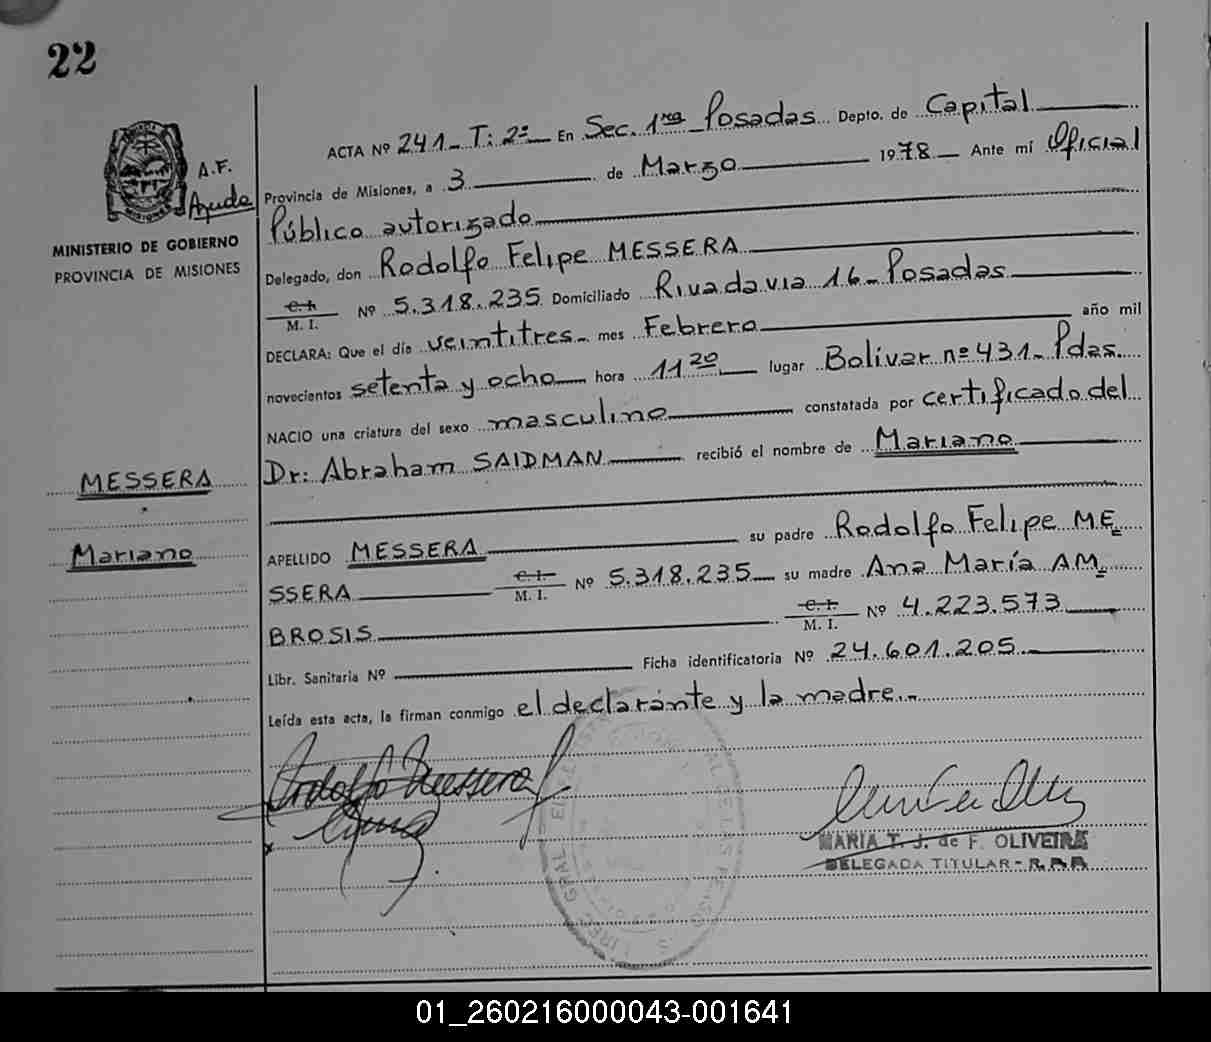 22
A.F.
Ayuda
MISIONES
MINISTERIO DE GOBIERNO
PROVINCIA DE MISIONES
ACTA Nº 241_ T: 2º_ En Sec. 1ra Posadas Depto. de Capital
Provincia de Misiones, a 3 de Marzo 1978 Ante mí Oficial
Público autorizado
Delegado, don Rodolfo Felipe MESSERA
C. I.
M. I. Nº 5.318.235 Domiciliado Rivadavia 16_ Posadas
DECLARA: Que el día veintitres_ mes Febrero año mil
novecientos setenta y ocho hora 11 20 lugar Bolívar nº 431_ Pdas.
NACIO una criatura del sexo masculino constatada por certificado del
Dr: Abraham SAIDMAN recibió el nombre de Mariano
MESSERA
Mariano
APELLIDO MESSERA su padre Rodolfo Felipe ME
SSERA C. I. M. I. Nº 5.318.235 su madre Ana María AM
BROSIS C. I. M. I. Nº 4.223.573
Libr. Sanitaria Nº Ficha identificatoria Nº 24.601.205
Leída esta acta, la firman conmigo el declarante y la madre.-
Rodolfo Messera
MARIA T. J. de F. OLIVEIRA
DELEGADA TITULAR - R.P.P.
01_260216000043-001641